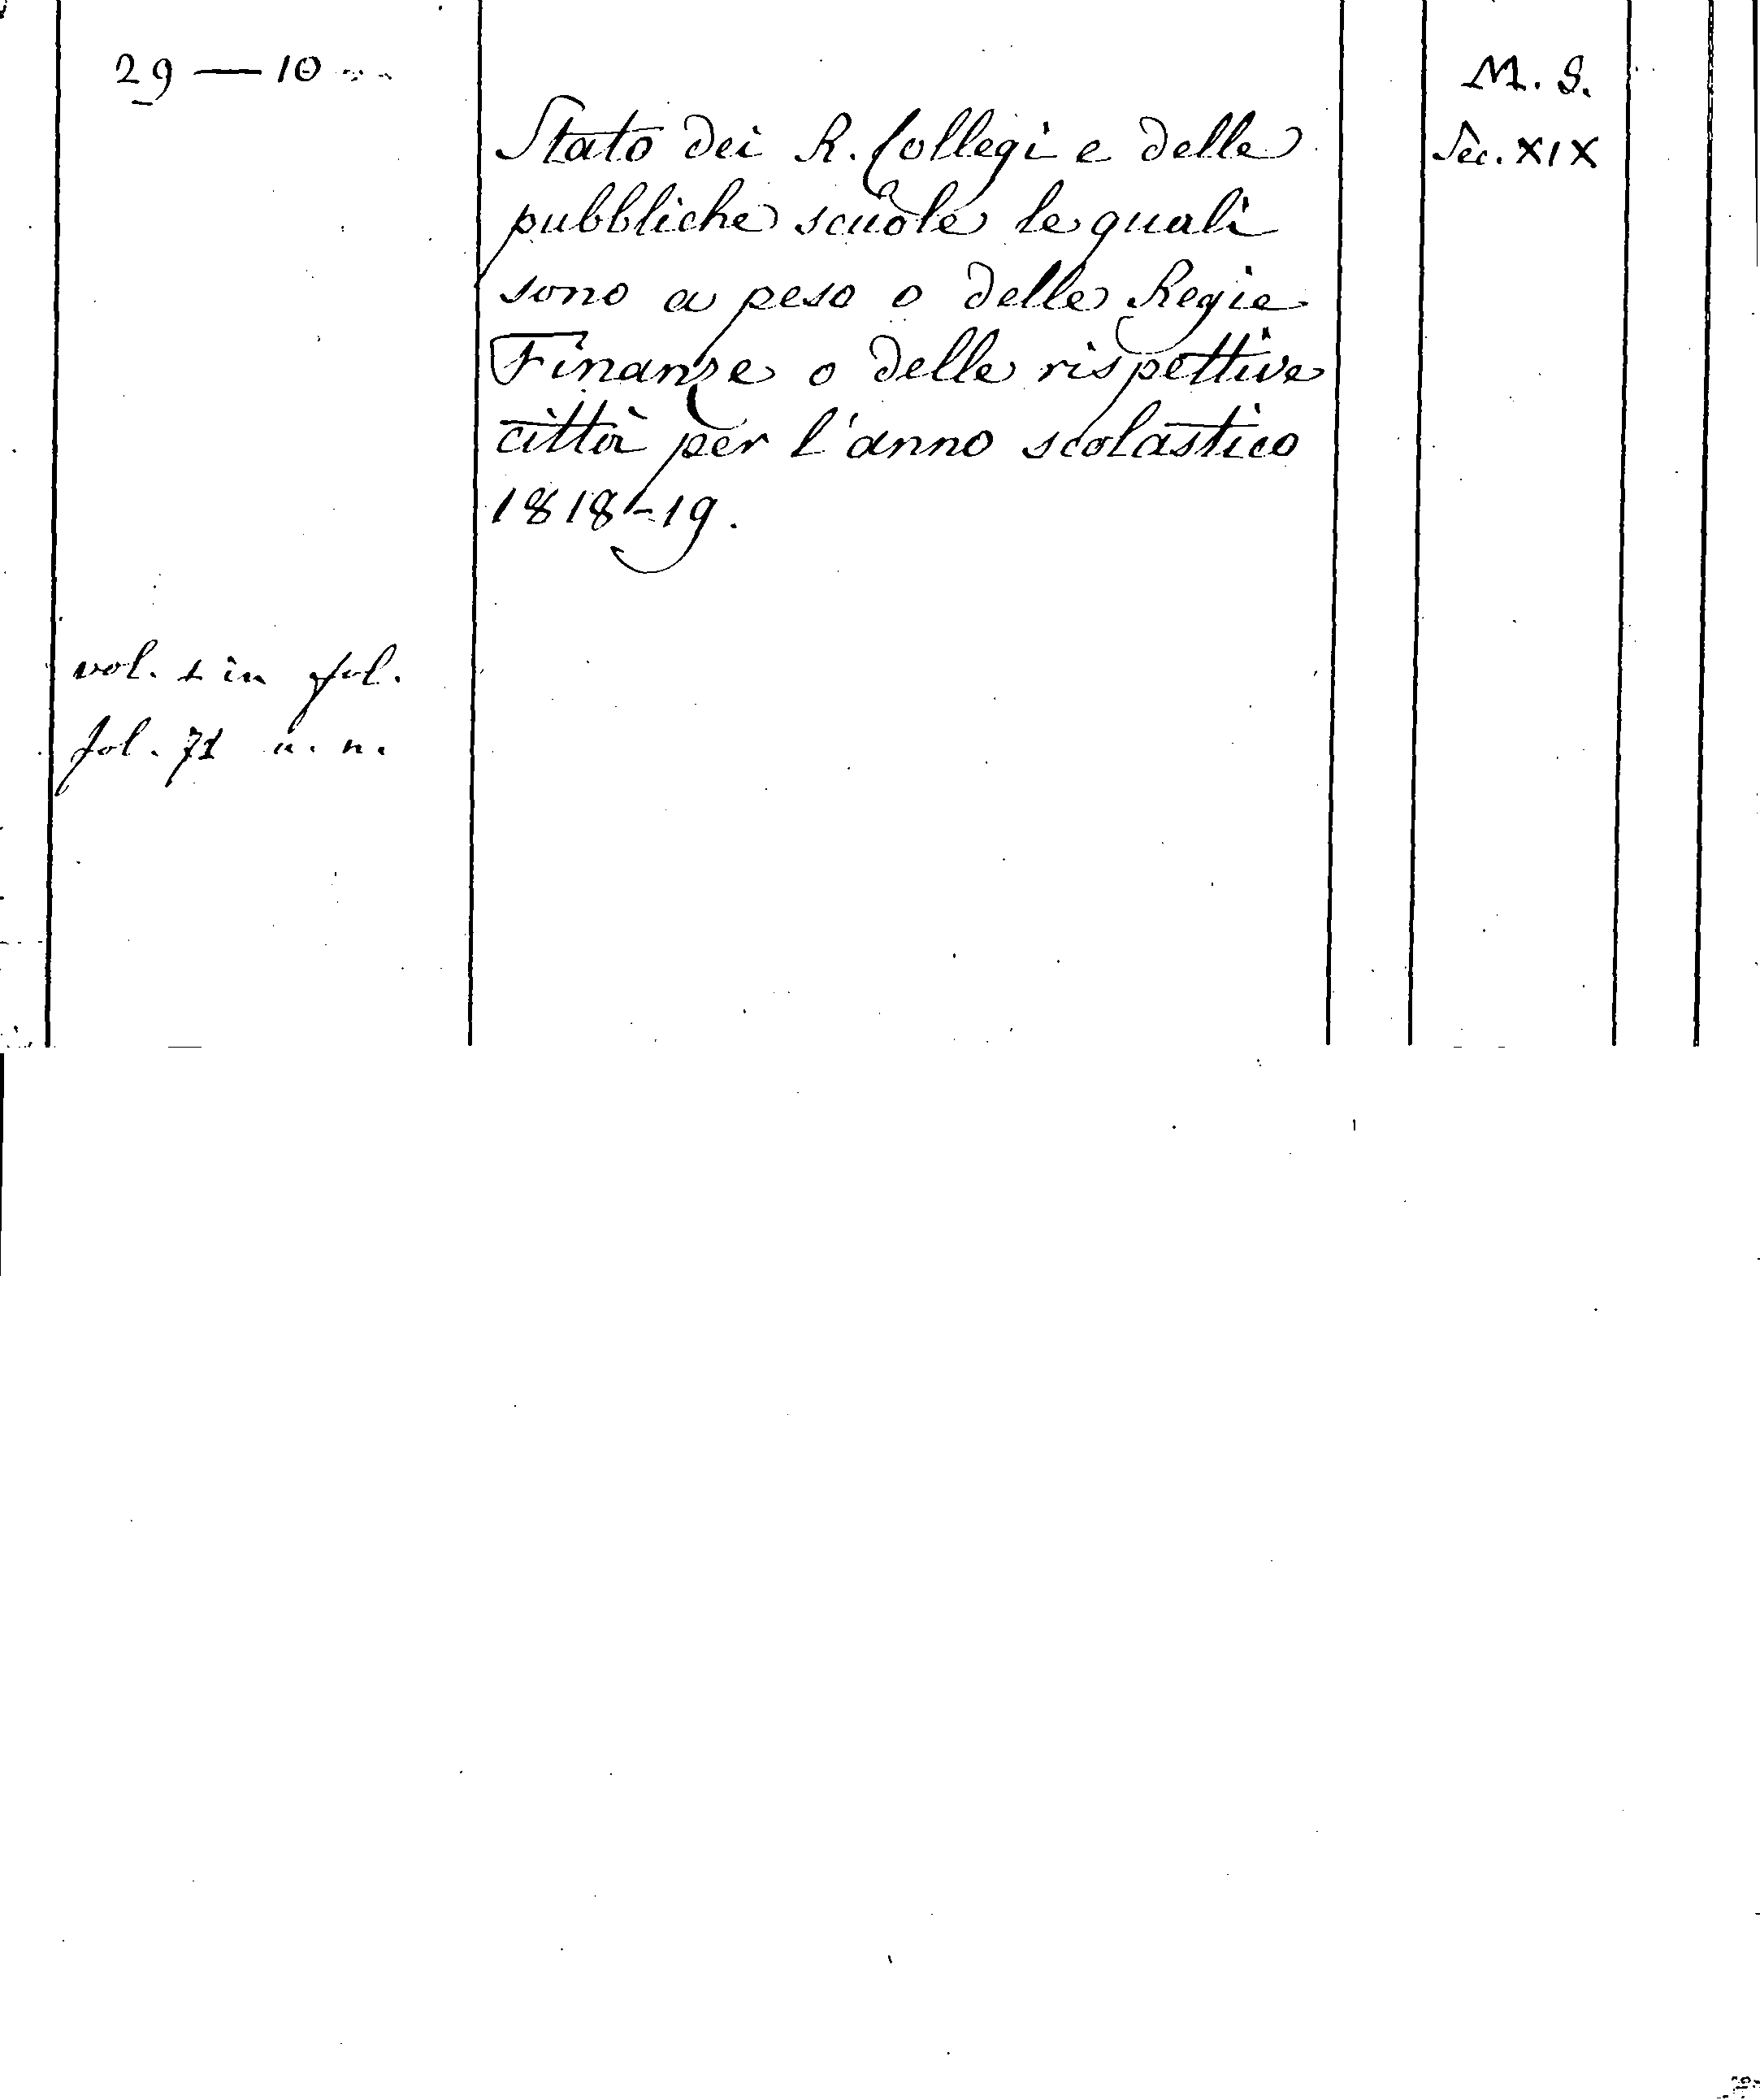 29 — 10
M. S.
Stato dei R. Collegi e delle
Sec. XIX
pubbliche scuole le quali
sono a peso o delle Regie
Finanze o delle rispettive
città per l'anno scolastico
1818-19.
vol. 1 in fol.
fol. 71 n. n.